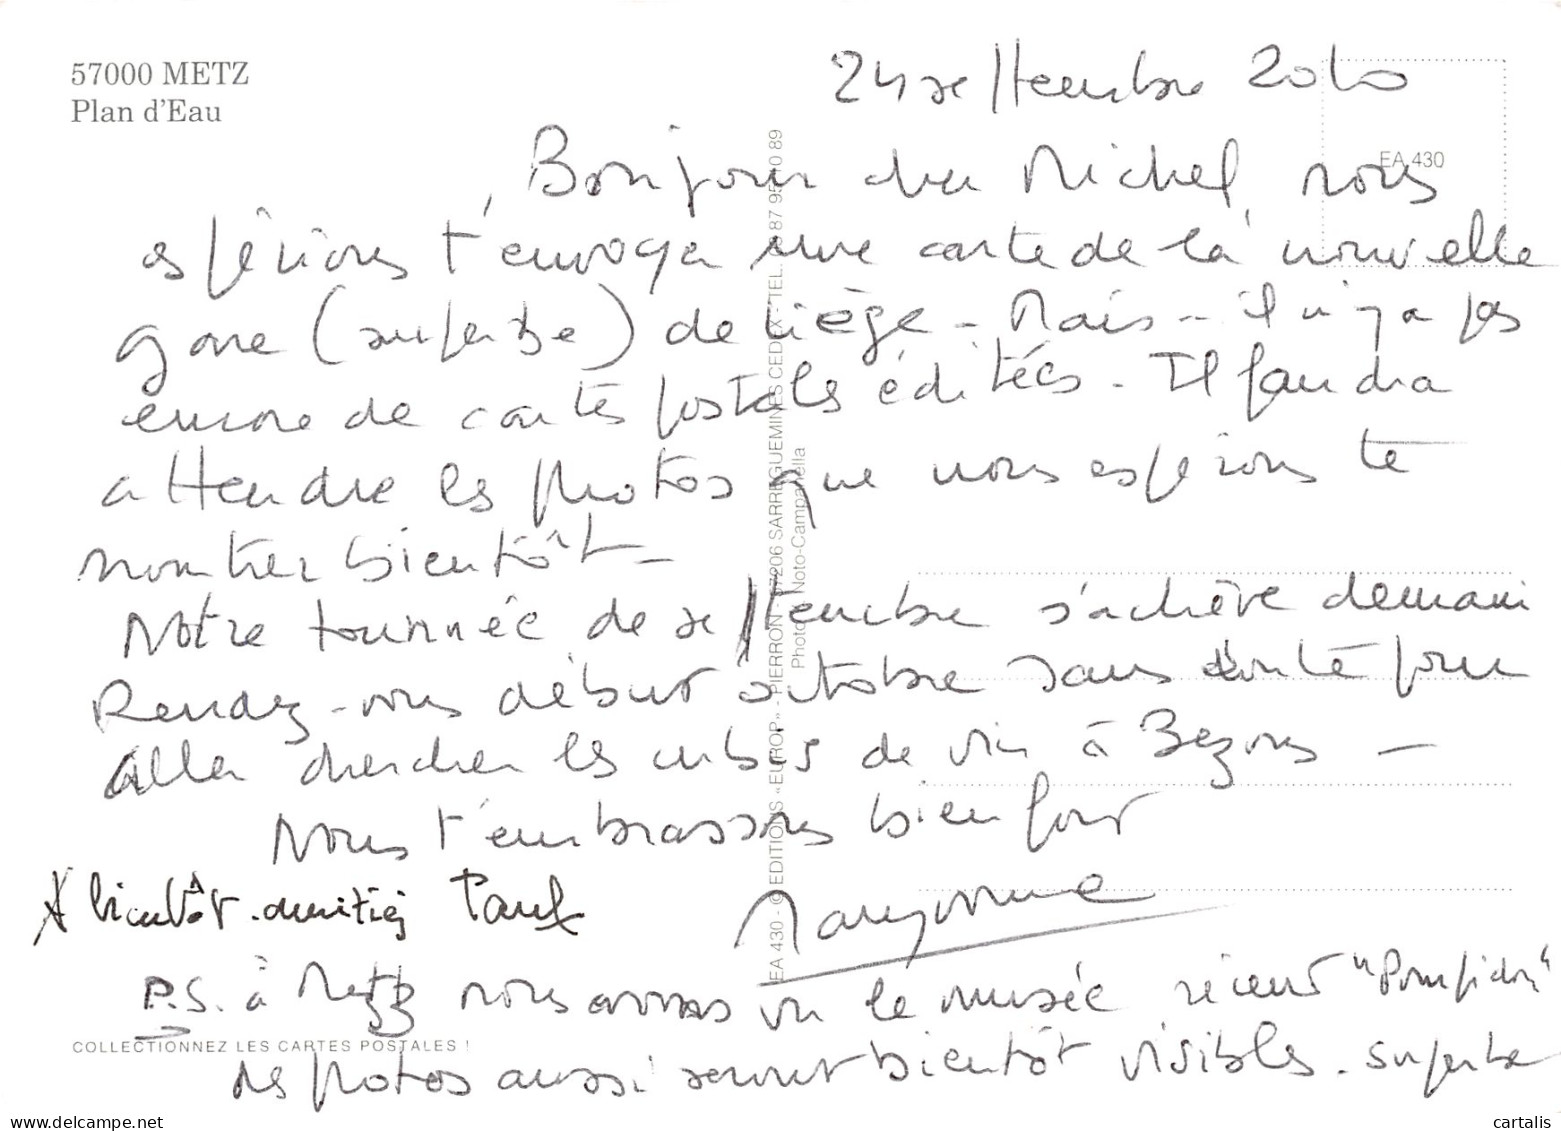 57000 METZ
Plan d'Eau
24 septembre 2010
EA 430
Bonjour cher Michel, nous
espérions t'envoyer une carte de la nouvelle
gare (superbe) de Liège - Mais - il n'y a pas
encore de cartes postales éditées - Il faudra
attendre les photos que nous espérons te
montrer bientôt -
Notre tournée de septembre s'achève demain
Rendez-vous début octobre sans doute pour
aller chercher les cubis de vin à Bezons -
Nous t'embrassons bien fort
A bientôt. amitiés Paul
Maryvonne
P.S. à Metz nous avons vu le musée récent "Pompidou"
des photos aussi seront bientôt visibles. superbe
COLLECTIONNEZ LES CARTES POSTALES !
EA 430 - © EDITIONS «EUROP» - PIERRON - 57206 SARREGUEMINES CEDEX - TEL. 87 95 10 89
Photo Noto-Campanella
cartalis
delcampe.net